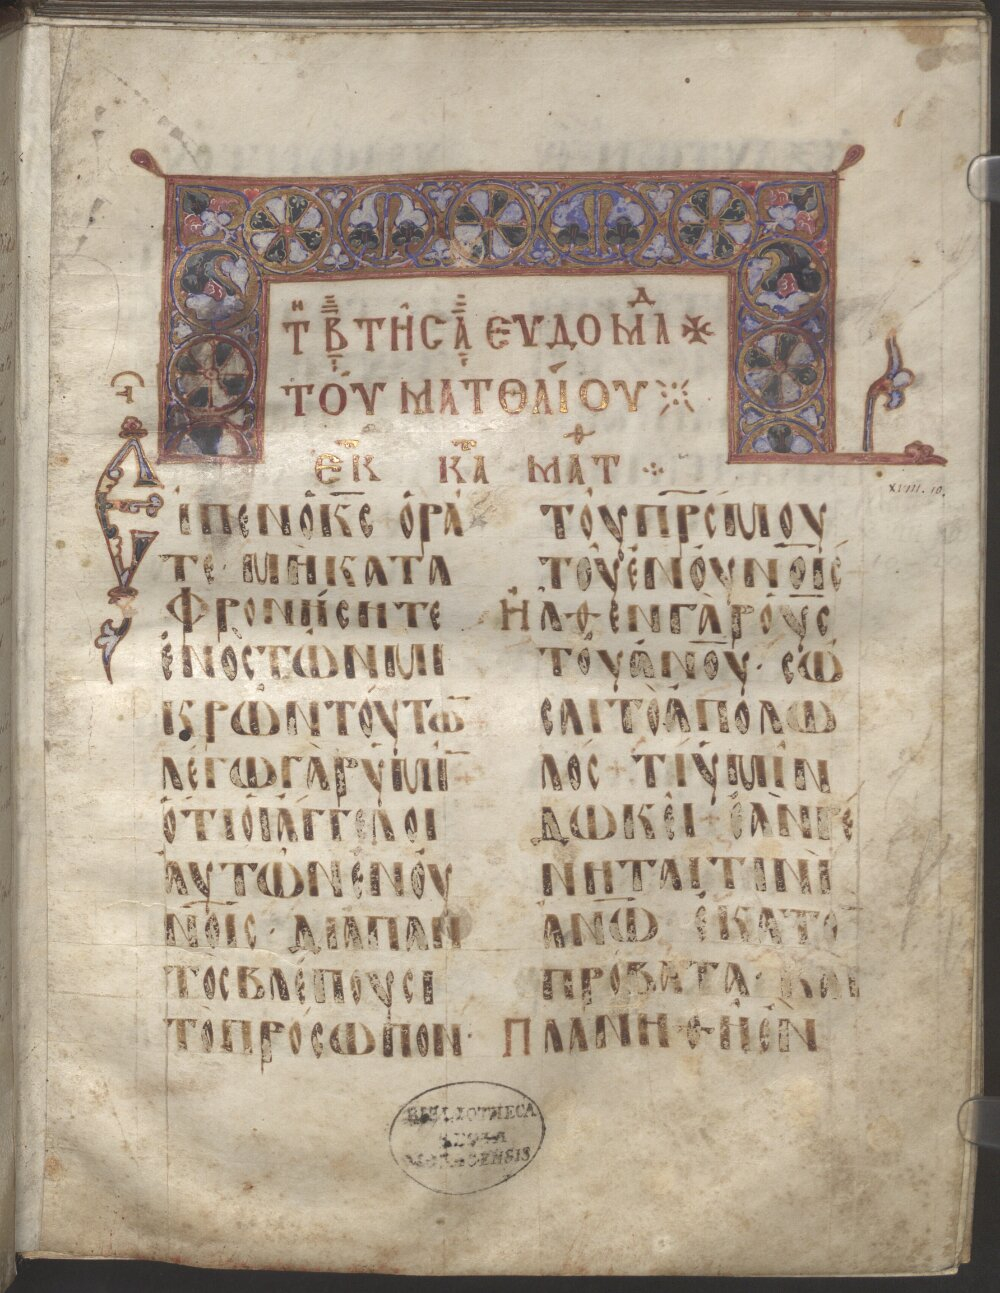 ΤΗ Β ΤΗC Α ΕΥΔΟΜΑΔ
ΤΟΥ ΜΑΤΘΑΙΟΥ
ΕΚ ΚΤΑ ΜΑΤΘ
ΕΙΠΕΝ Ο Κ̅C̅ ΟΡΑ
ΤΕ ΜΗ ΚΑΤΑ
ΦΡΟΝΗCΗΤΕ
ΕΝΟC ΤΩΝ ΜΙ
ΚΡΩΝ ΤΟΥΤΩ̅
ΛΕΓΩ ΓΑΡ ΥΜΙ̅
ΟΤΙ ΟΙ ΑΓΓΕΛΟΙ
ΑΥΤΩΝ ΕΝ ΟΥ
ΝΟΙC· ΔΙΑ ΠΑΝ
ΤΟC ΒΛΕΠΟΥCΙ
ΤΟ ΠΡΟCΩΠΟΝ·
ΤΟΥ Π̅Ρ̅C̅ ΜΟΥ
ΤΟΥ ΕΝ ΟΥΝΟΙC
ΗΛΘΕΝ ΓΑΡ Ο Υ̅C̅
ΤΟΥ Α̅Ν̅Ο̅Υ̅· CΩ
CΑΙ ΤΟ ΑΠΟΛΩ
ΛΟC + ΤΙ ΥΜΙΝ
ΔΟΚΕΙ + ΕΑΝ ΓΕ
ΝΗΤΑΙ ΤΙΝΙ
Α̅Ν̅Ω̅ ΕΚΑΤΟ̅
ΠΡΟΒΑΤΑ· ΚΑΙ
ΠΛΑΝΗΘΗ ΕΝ
XVIII. 10.
BIBLIOTHECA
REGIA
MONACENSIS